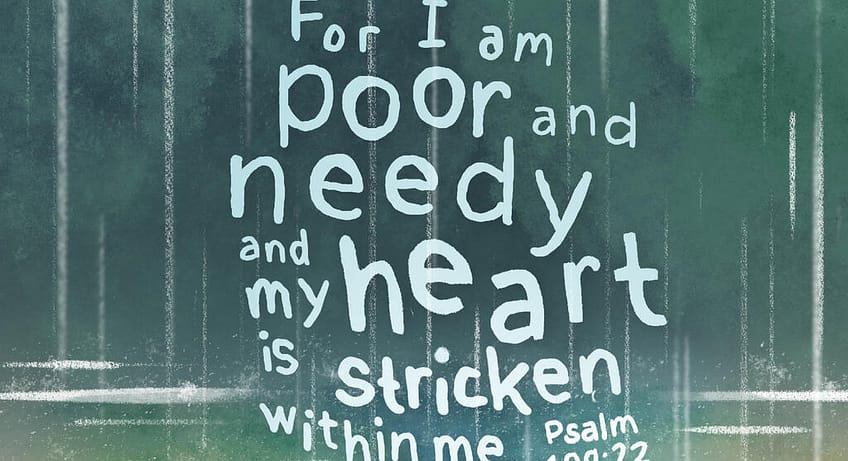 For I am
poor and
needy
and
my heart
is stricken
within me
Psalm
109:22